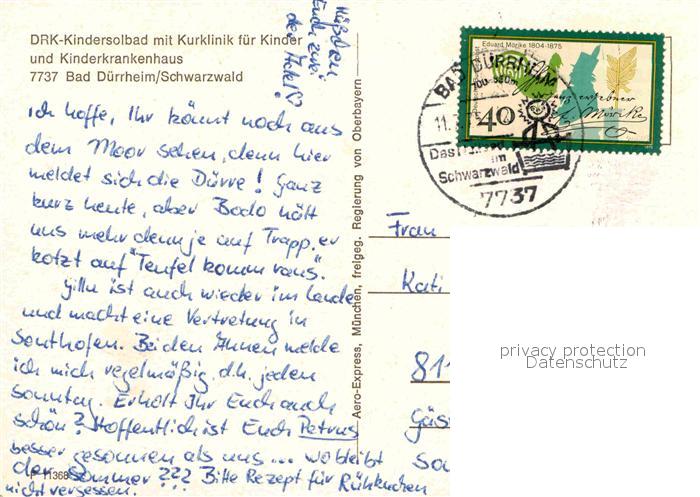 DRK-Kindersolbad mit Kurklinik für Kinder
und Kinderkrankenhaus
7737 Bad Dürrheim/Schwarzwald
ich hoffe, Ihr könnt noch aus
dem Moor sehen, denn hier
meldet sich die Dürre! Ganz
kurz heute, aber Bodo hält
uns mehr denn je auf Trapp, er
kotzt auf "Teufel komm raus".
ist auch wieder im Lande
und macht eine Vertretung in
Sonthofen. Bei den Ahnen melde
ich mich regelmäßig, d.h. jeden
Sonntag. Erholt Ihr Euch auch
schön? Hoffentlich ist Euch Petrus
besser gesonnen als uns... wo bleibt
der Sommer??? Bitte Rezept für Rührkuchen
nicht vergessen.
Euch zwei
P 11368
Aero-Express, München, freigeg. Regierung von Oberbayern
Eduard Mörike 1804-1875
40
BAD DÜRRHEIM
700-
11.
Das
im
Schwarzwald
7737
Frau
Kati
811
privacy protection
Datenschutz